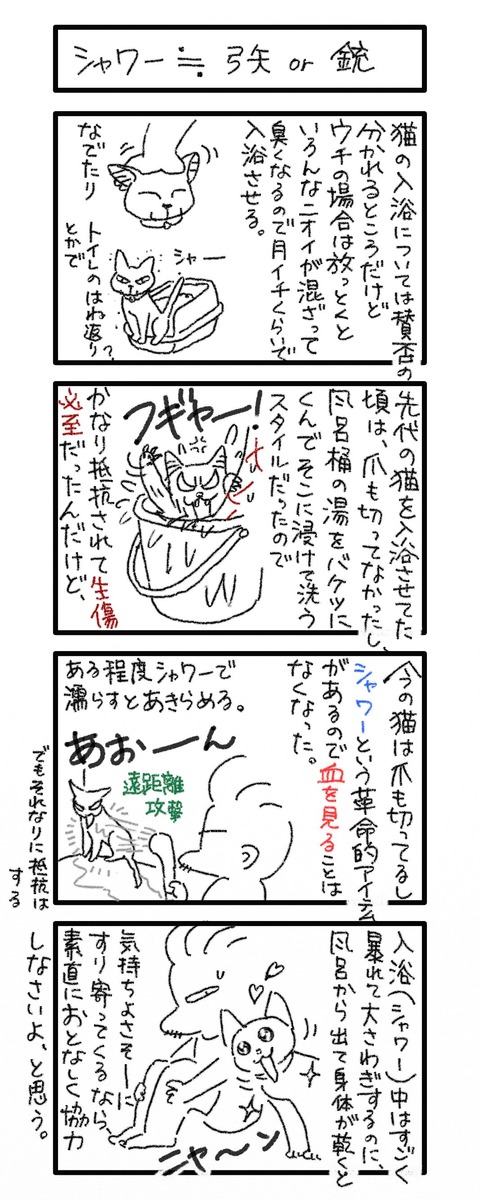 シャワー≒弓矢or銃
猫の入浴については賛否の
分かれるところだけど
ウチの場合は放っとくと
いろんなニオイが混ざって
臭くなるので月イチくらいで
入浴させる。
なでたり
シャー
トイレのはね返り?
とかで
先代の猫を入浴させてた
頃は、爪も切ってなかったし、
風呂桶の湯をバケツに
くんでそこに浸けて洗う
スタイルだったので
フギャー!
かなり抵抗されて生傷
必至だったんだけど、
今の猫は爪も切ってるし
シャワーという革命的アイテム
があるので血を見ることは
なくなった。
ある程度シャワーで
濡らすとあきらめる。
あおーーん
遠距離
攻撃
でもそれなりに抵抗は
する
入浴(シャワー)中はすごく
暴れて大さわぎするのに、
風呂から出て身体が乾くと
気持ちよさそーに
すり寄ってくるなら、
素直におとなしく協力
しなさいよ、と思う。
ニャ〜ン